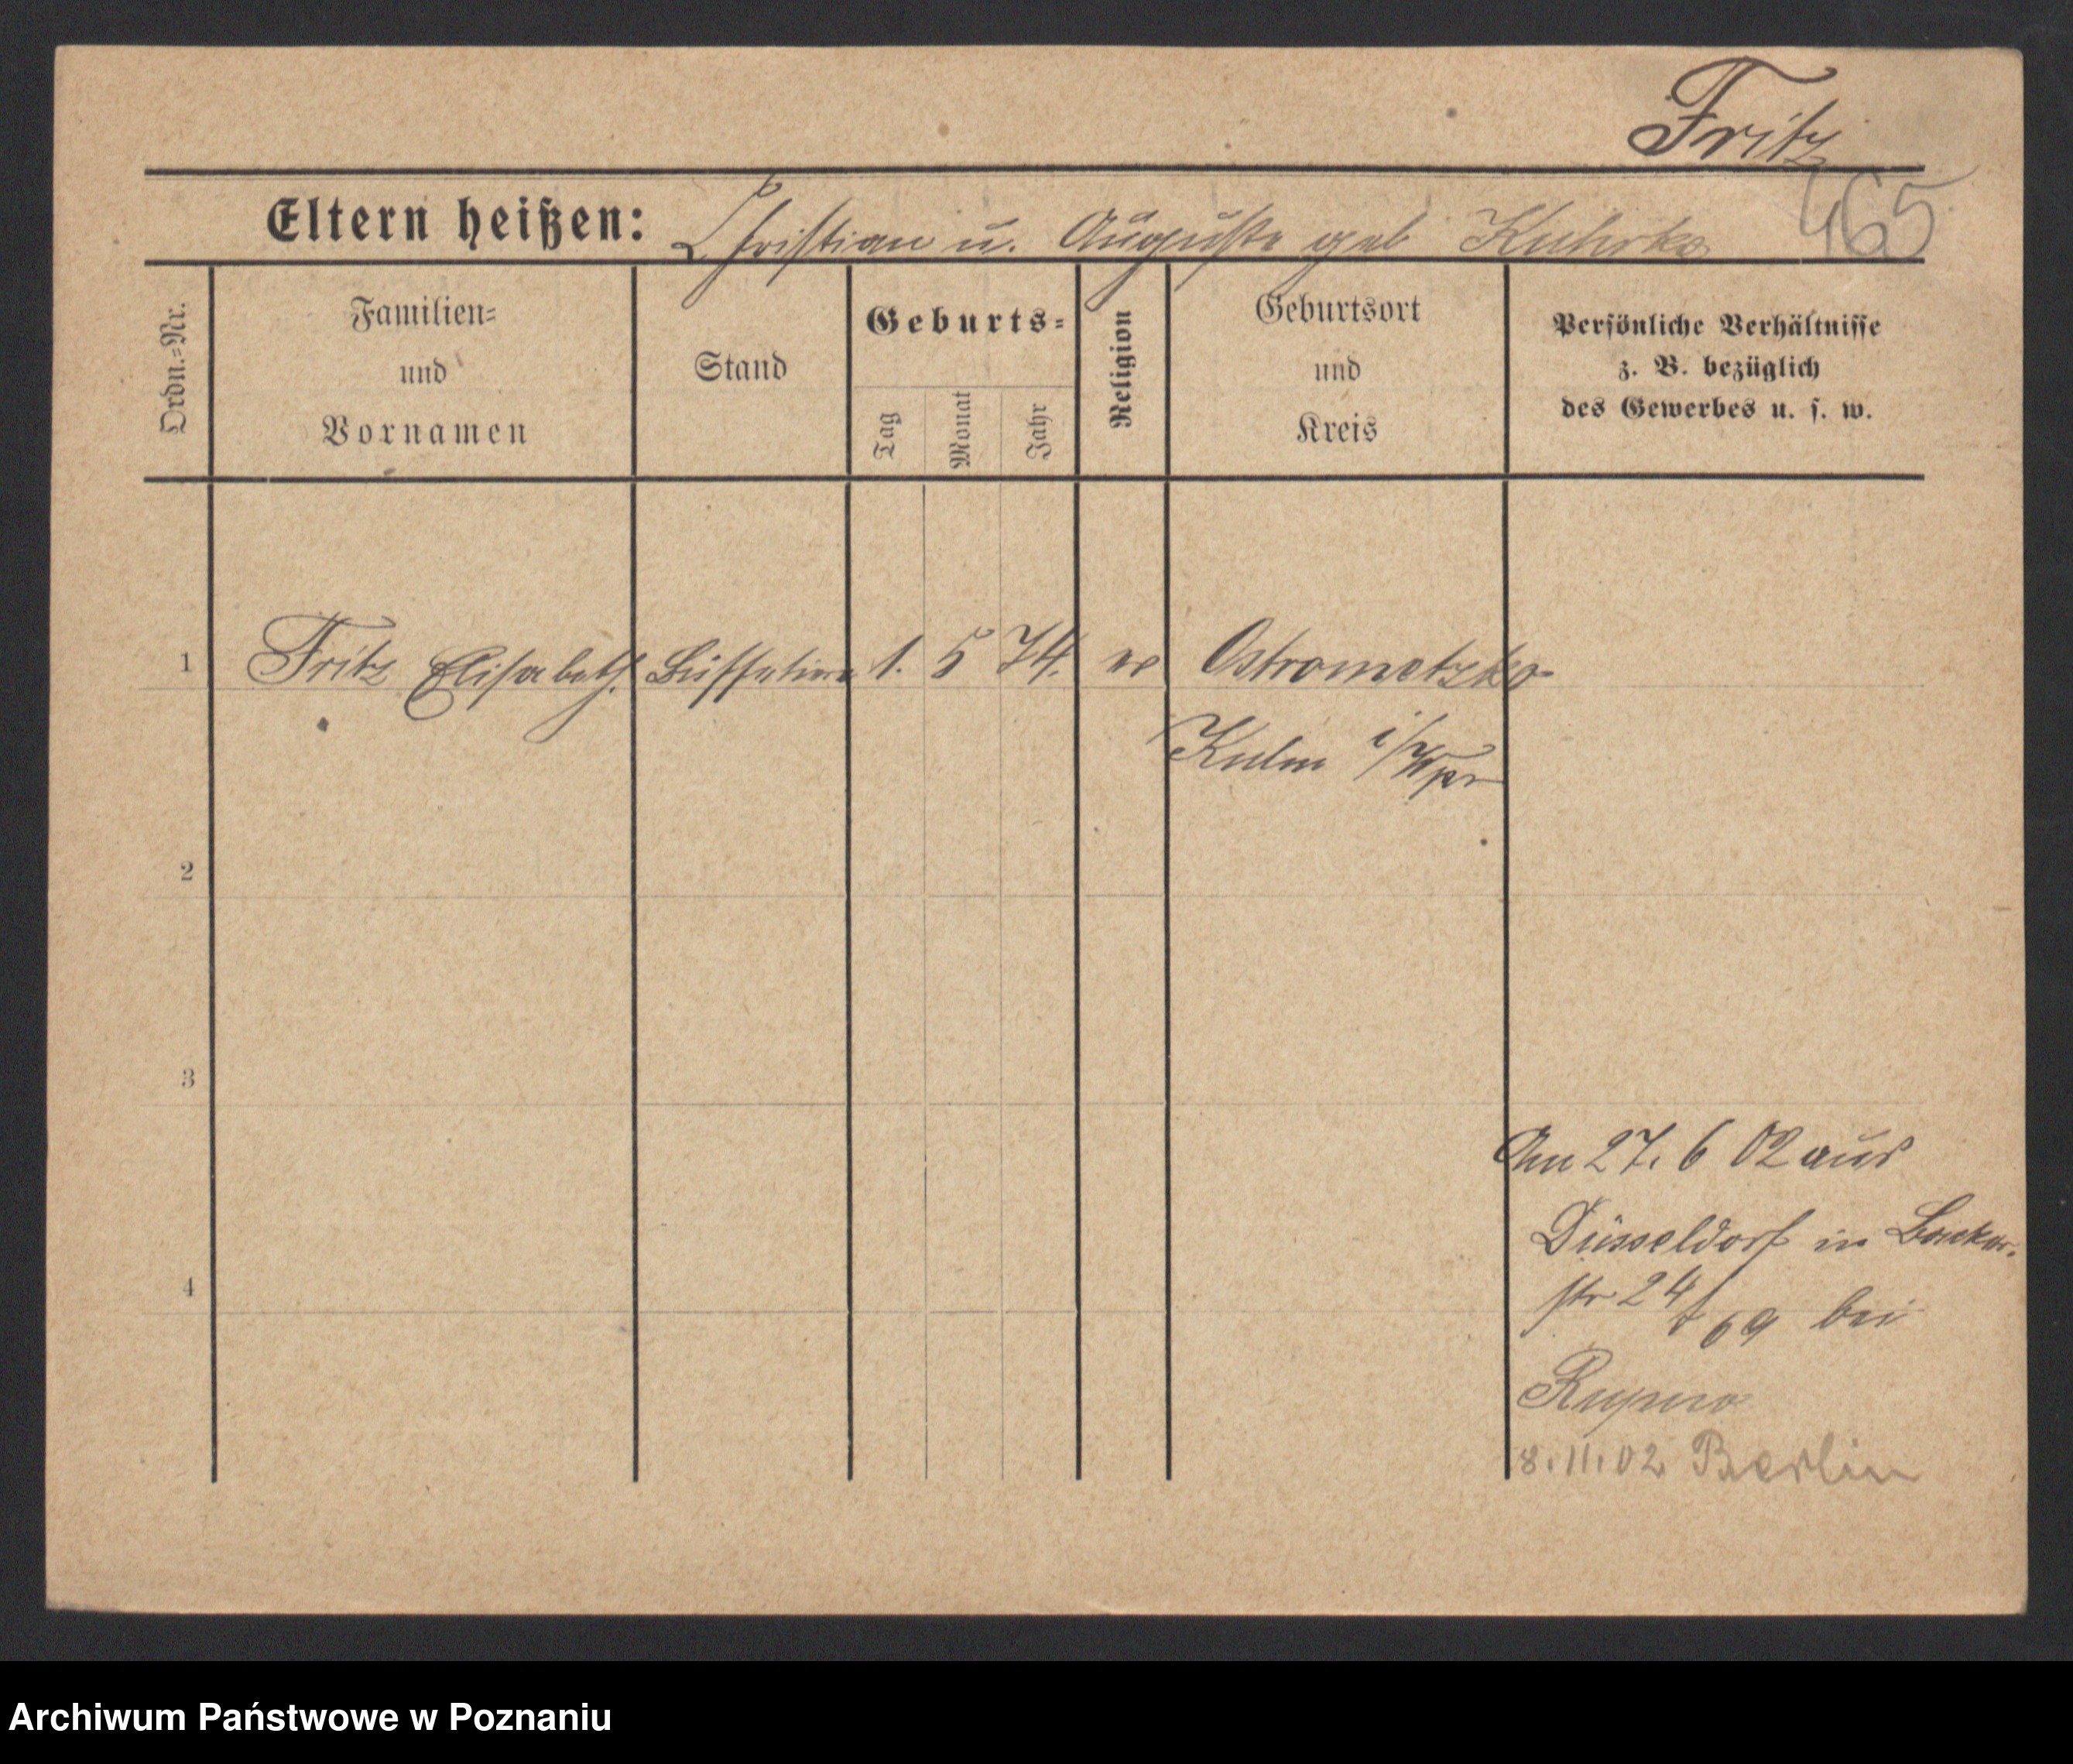 Fritz
465
Eltern heißen: Christian u. Auguste geb Kuhrke
Ordn.=Nr.
Familien=
und
Vornamen
Stand
Geburts=
Tag
Monat
Jahr
Religion
Geburtsort
und
Kreis
Persönliche Verhältnisse
z. B. bezüglich
des Gewerbes u. s. w.
1 Fritz Elisabeth. 1. 5 74. ev Ostrometzko
Kulm i/Wpr
2
3
Am 27. 6 02 aus
Düsseldorf in
4
str 24 69 bei
8.11.02 Berlin
Archiwum Państwowe w Poznaniu